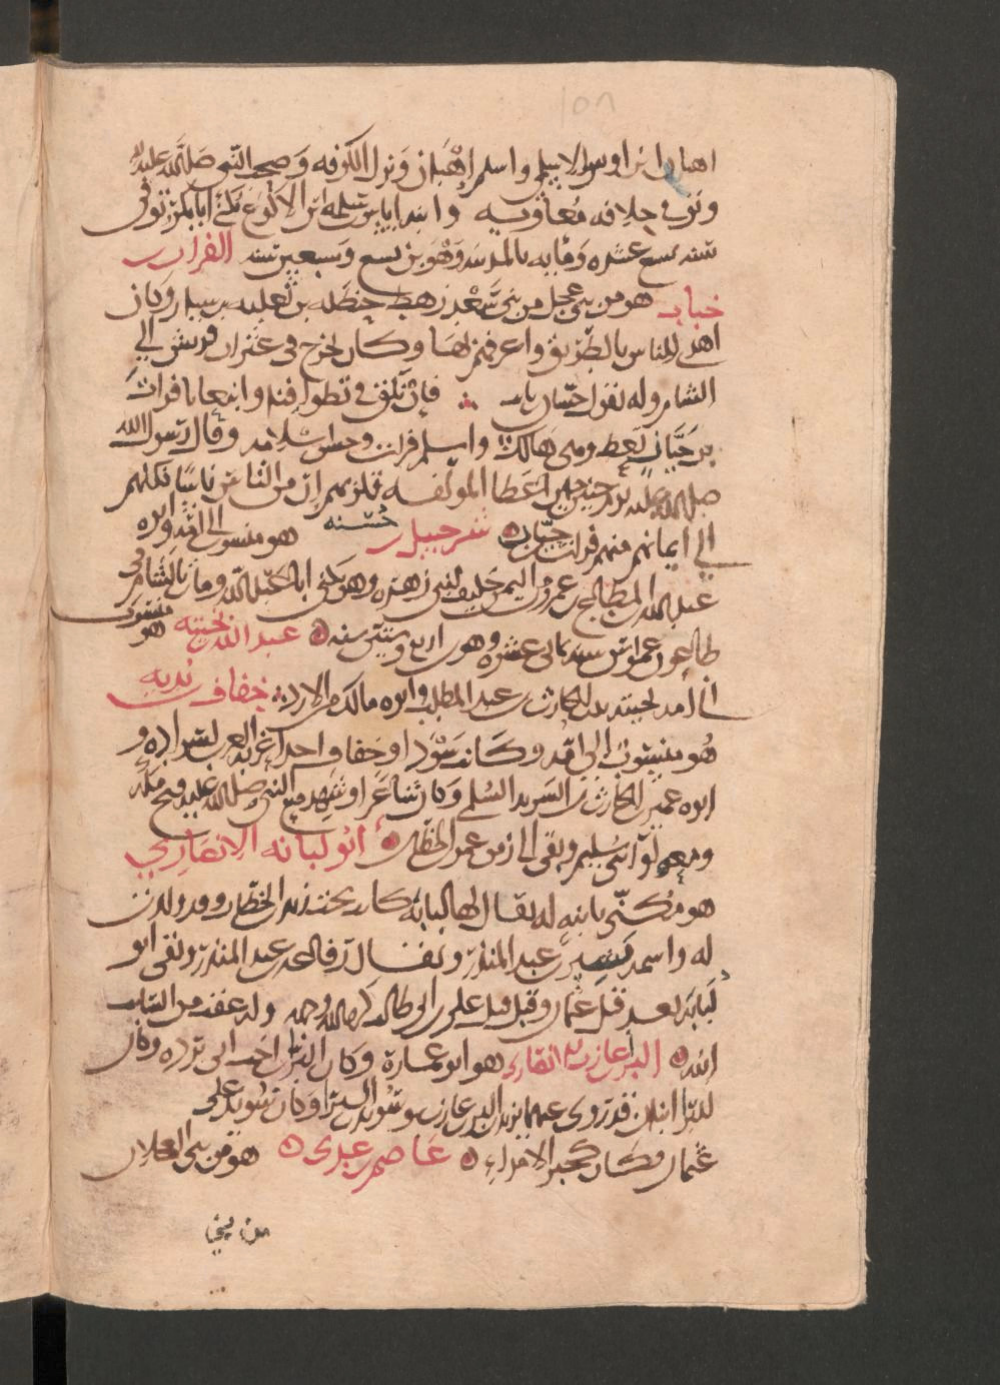 ١٥٨
اهبان ابن اوس الاسلمي واسلم اهبان ونزل الكوفه وصحب النبي صلى الله عليه
وتوفي في خلافه معاويه وابنه اياس بن سلمه ابن الاكوع يكنى ابا بكر توفي
سنه تسع عشره ومايه بالمدينه وهو بن سبع وسبعين سنه الفرات بن
حيان هو من بني عجل من بني سعد رهط حنظله بن ثعلبه بن سيار وكان
اهدى الناس بالطريق واعرفهم بها وكان يخرج في عيران قريش الى
الشام وله يقول حسان بن ثابت فان نلق في تطوافنا وابتغاينا فرات
بن حيان يعط وهن هالك واسلم فرات وحسن اسلامه وقال رسول الله
صلى الله عليه يوم حنين حين اعطا المولفه قلوبهم ان من الناس ناسا نكلهم
الى ايمانهم منهم فرات بن حيان شرحبيل بن حسنه هو منسوب الى امه وابوه
عبد الله المطاع بن عمرو من اليمن حليف لبني زهره وهو يكنى ابا عبد الله ومات بالشام في
طاعون عمواس سنه ثماني عشره وهو ابن اربع وستين سنه عبد الله بن بحينه هو منسوب
الى امه بحينه بنت الحارث بن عبد المطلب وابوه مالك من الازد خفاف بن ندبه
هو منسوب الى امه وكانت سودا وخفاف احد اغربه العرب لسواده و
ابوه عمير بن الحارث بن الشريد السلمي وكان شاعرا وشهد مع النبي صلى الله عليه فتح مكه
ومعه لوا بني سليم وبقي الى زمن عمر بن الخطاب ابو لبابه الانصاري
هو مكنى بابنه له يقال لها لبابه كانت تحت زيد بن الخطاب وقد ولدت
له واسمه بشير بن عبد المنذر ويقال رفاعه بن عبد المنذر وبقي ابو
لبابه بعد قتل عثمان وقبل قتل علي بن ابي طالب كرم الله وجهه وله عقب من السايب
ابنه البرا بن عازب الانصاري هو ابو عماره وكان البرا بن اخت ابي برده وكان
للبرا ابنان قد روى عنهما يزيد بن البرا بن عازب وسويد بن البرا وكان سويد على
عمان وكان كخير الامراء عاصم بن عدي هو من بني العجلان
من بني